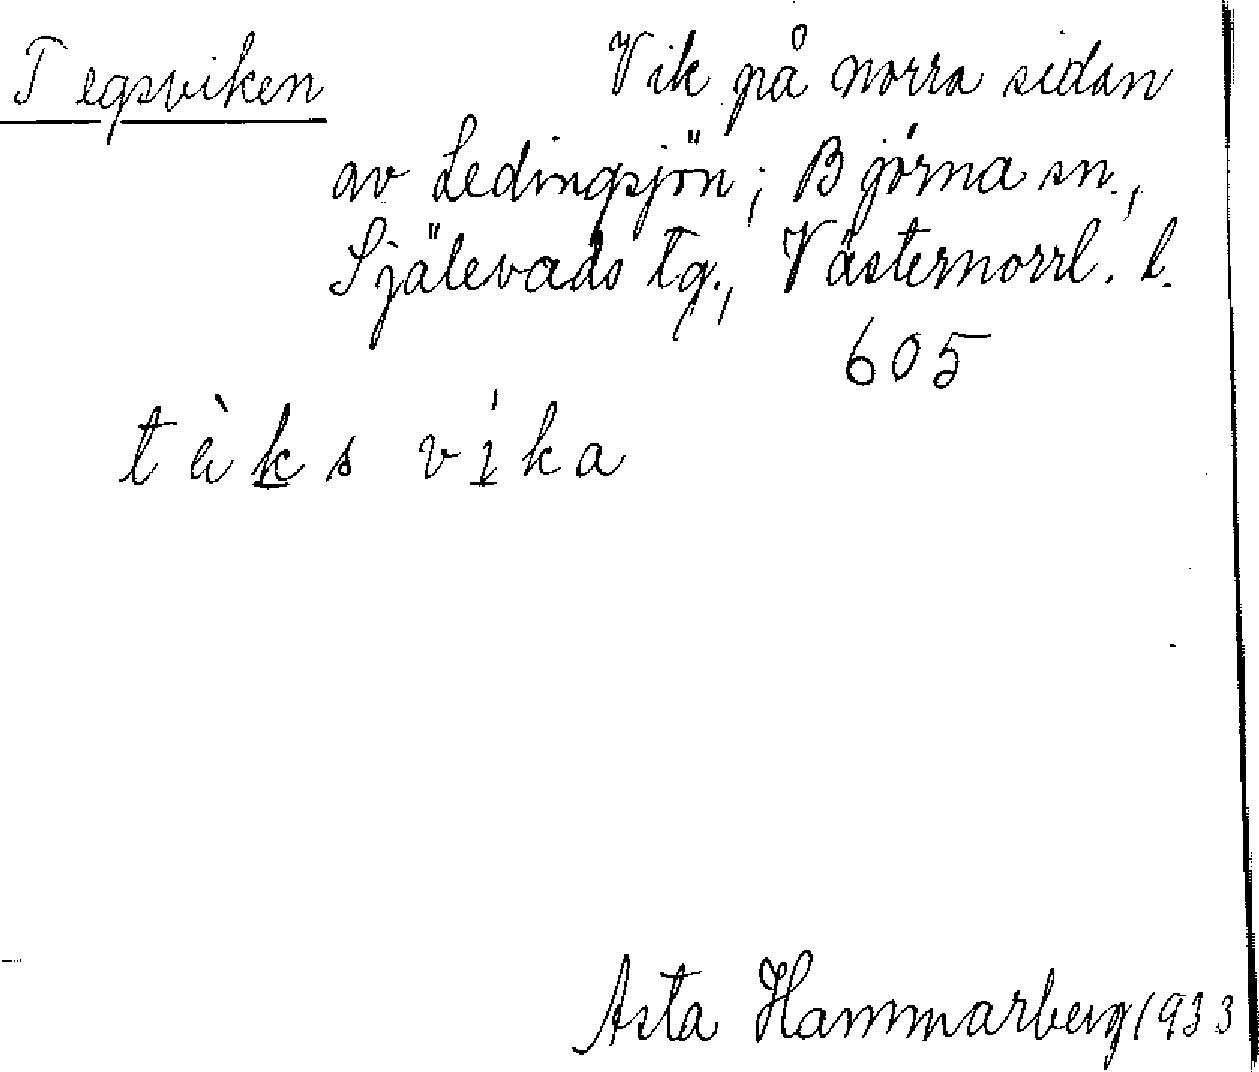 Tegsviken Vik på norra sidan
av Ledingsjön; Björna sn.,
Själevads tg., Västernorrl. l.
605
tèks víka
Asta Hammarberg 1933